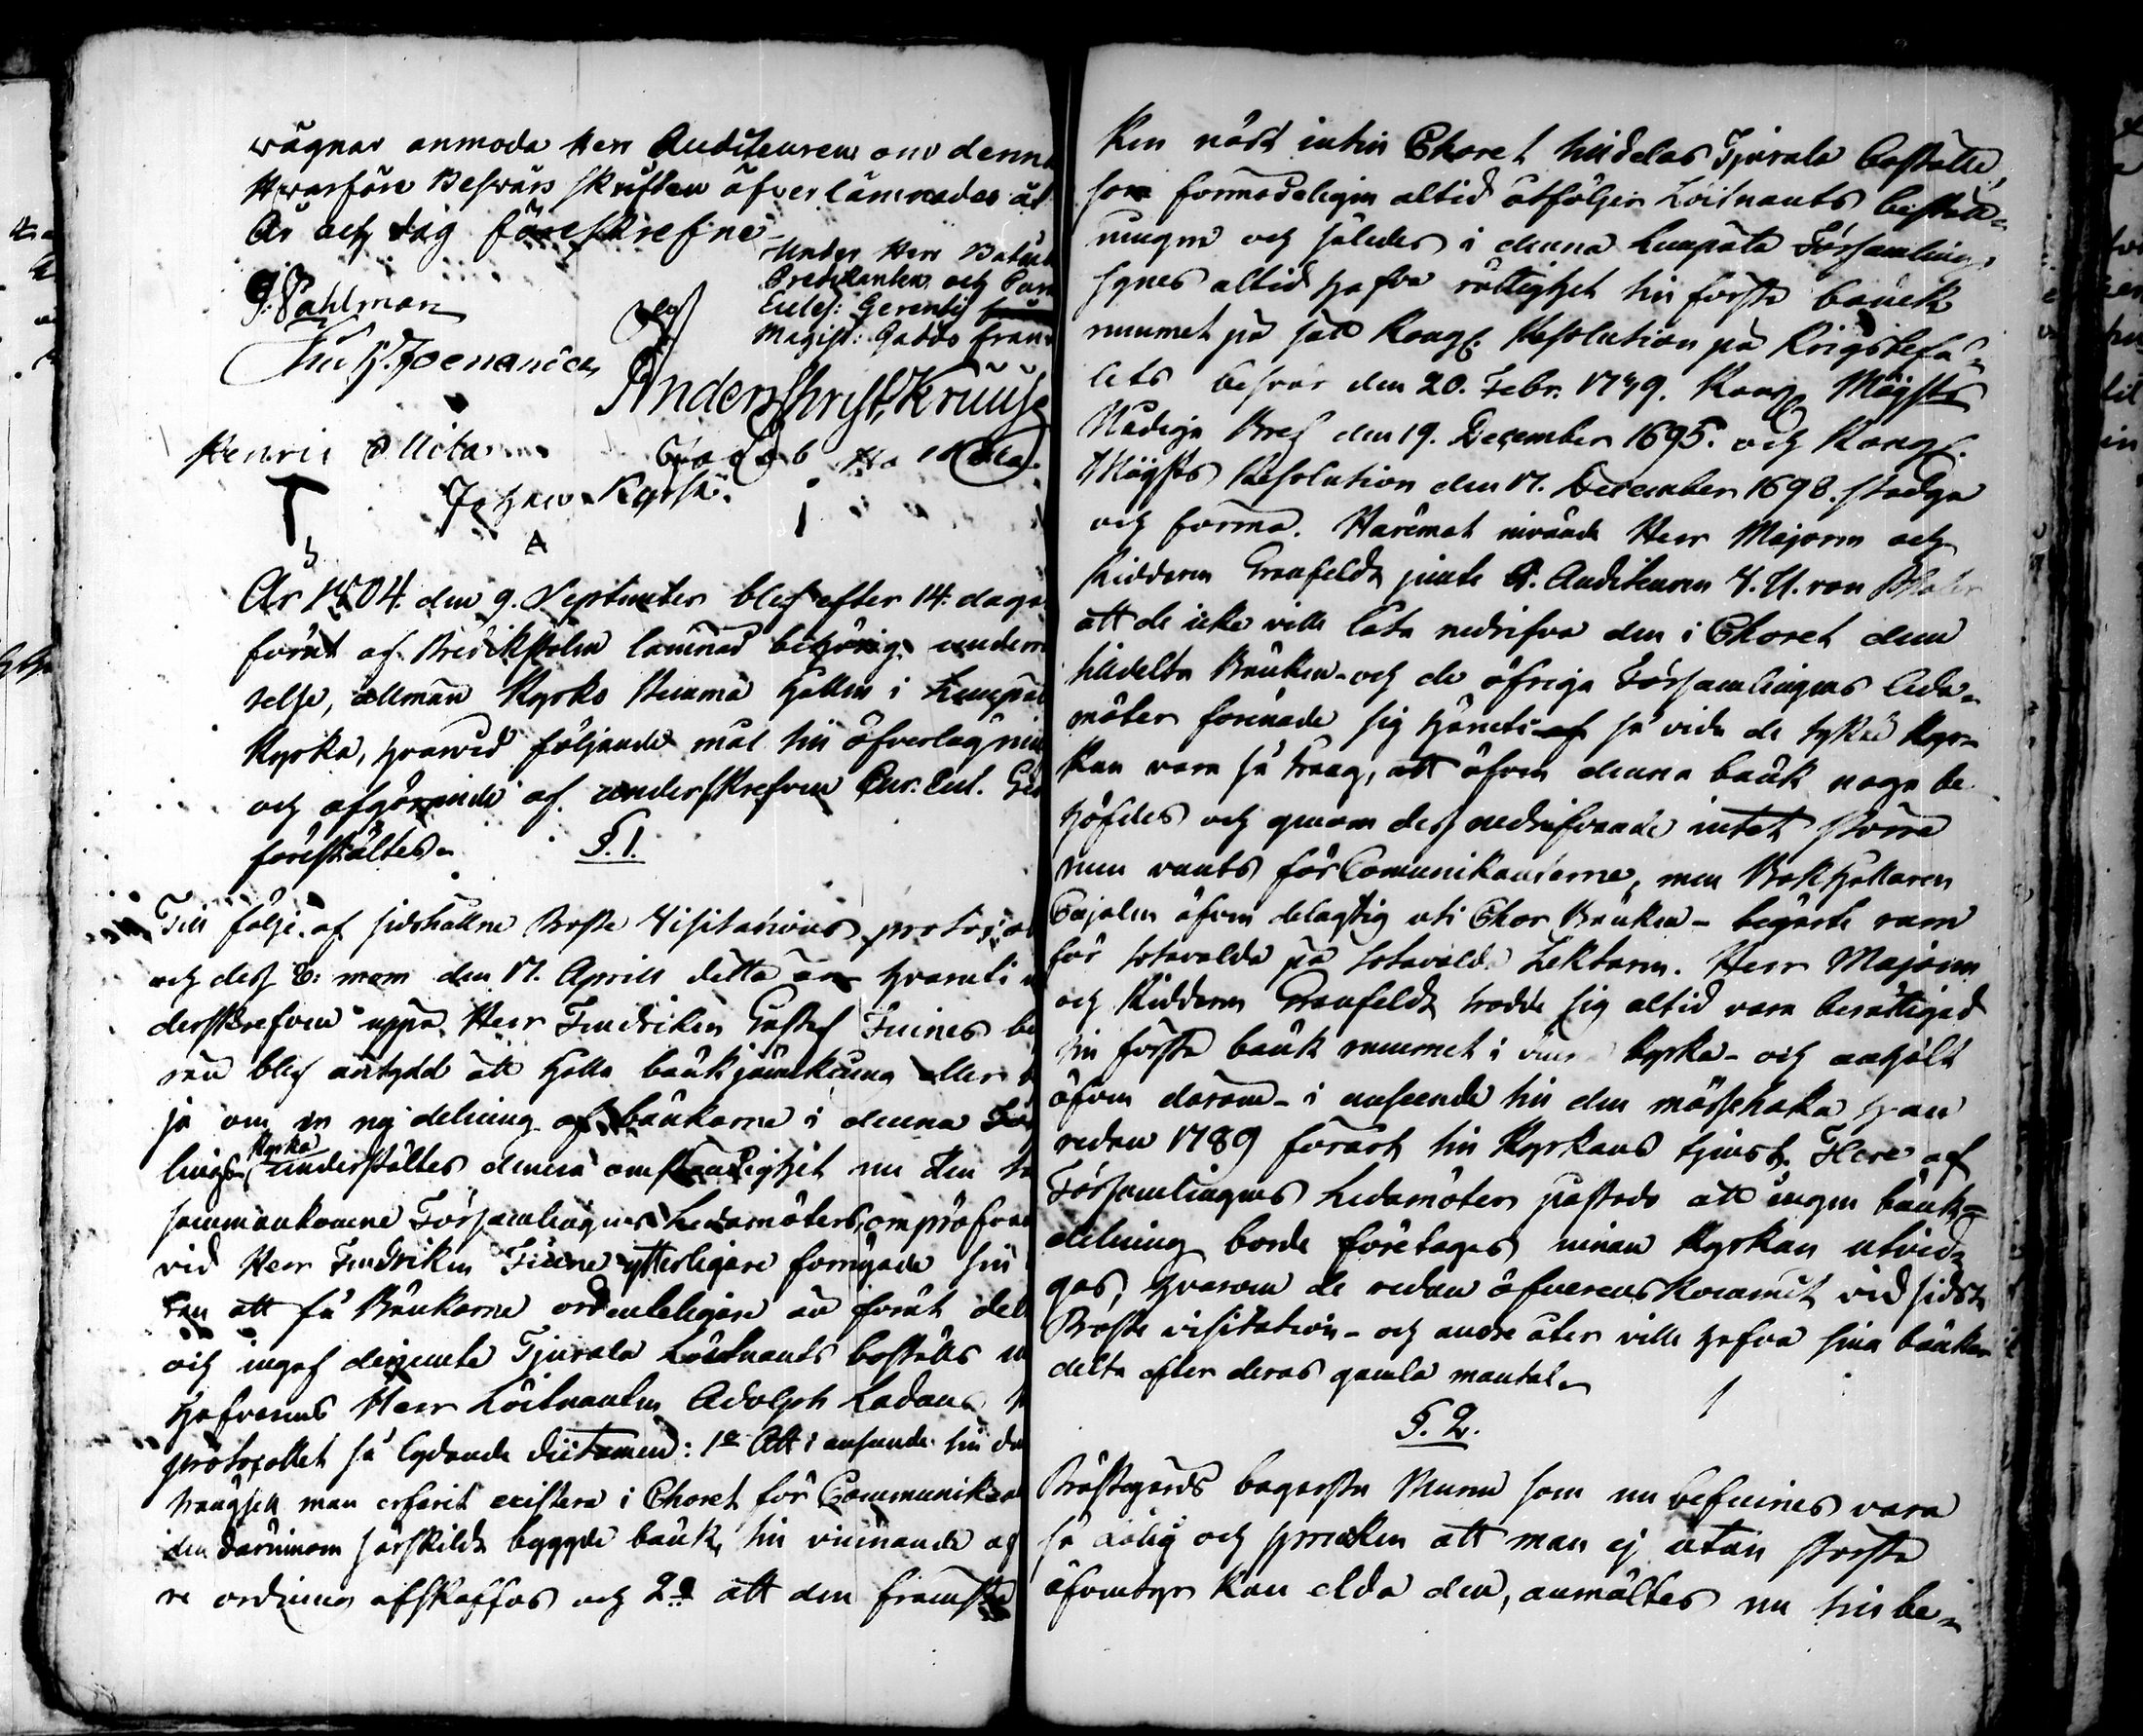 wägnar anmoda Herr Auditeuren om denna
Hwarföre Beswärs skriften öfverlämnades åt
År och dag föreskrefne
Under Herr Batail
Predikanten och Past
Eccles: Gerentis
Magist: Gadds frånw
G: Pahlman
Anders Christ. Kruuse
Henric Mita
Jacob
Johan Kyrsä
År 1804. den 9. September blef efter 14. dagar
förut af Predikstolen lämnad behörig underrä
telse, allmän Kyrko Stemma hållen i Lempälä
Kyrka, hvarvid följande mål till öfverläggnin
och afgörande af underskrefven Cur. Eccl. Ger
föreställtes.
§. 1.
Till följe af sidsthållne Prosts Visitations protocol
och dess 6: mom den 17. April detta år hvaruti un
derskrefven uppå Herr Fendriken Gustaf Fuines be
ran blef antydd att hålla bänkjämkning eller
ja om en ny delning af bänkarne i denna För
lings Kyrka underställtes denna omständighet nu den ta
sammankomne Församlingens Ledamöters ompröfvan
vid Herr Fendriken Fuine ytterligare förnyade sin
ran att få Bänkarne ordenteligare än förut del
och ingaf derjemte Tjurala Löitnants boställs in
hafvarens Herr Löitnanten Adolph Ladaus
protocollet så lydande dictamen: 1o Att i anseende till de
trängsell man erfarit existera i Choret för Communikan
den därinom särskildt byggde bänk, till vinnande af
re ordning afskaffas och 2o att den främste
ken näst intill Choret tilldelas Tjurala boställe,
som förmodeligen altid åtföljer Löitnants beställ-
ningen och således i denna Lempälä Församling,
synes altid hafva rättighet till första bänck
rummet på sätt Kongl. Resolution på Krigsbefä-
lets besvär den 20. Febr. 1739. Kongl Maijsts
Nådiga Bref den 19. December 1695. och Kongl.
Maijsts Resolution den 17. December 1698. stadga
och forma. Häremot invände Herr Majoren och
Riddaren Granfeldt jemte H. Auditeuren V. U. von
att de icke ville låta nedrifva den i Choret dem
tilldelta Bänken och de öfriga Församlingens leda-
möter förenade sig häruti af så vida de tyckte Kyr-
kan vara så trång, att äfven denna bänk noga be-
höfdes och genom dess nedrifvande intet större
rum vants för Communikanterne, men Bokhållaren
Cajalen äfven delagtig uti Chor Bänken - begärte rum
för Sotavalda på Sotavalda Lektaren. Herr Majoren
och Riddaren Granfeldt trodde sig altid vara berättigad
till första bänk rummet i denna kyrka - och anhölt
äfven därom - i anseende till den mässehaka han
redan 1789 förärt till Kyrkans tjenst. Flere af
Församlingens Ledamöter påstodo att ingen bänk-
delning borde företagas innan Kyrkan utvid-
gas, hvarom de redan öfverenskommit vid sidsta
Prosts visitation - och andre åter ville hafva sina bänkar
delta efter deras gamla mantal.
§. 2.
Prästegårds bagarstu Muren som nu befinnes vara
så dålig och sprucken att man ej utan största
äfventyr kan elda den, anmältes nu till be-